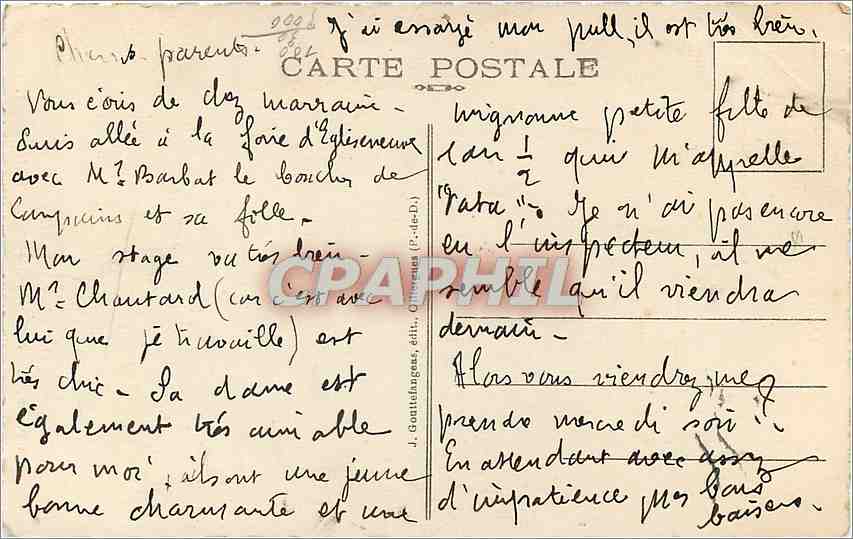 J'ai essayé mon pull, il est très bien.
Chers parents.
CARTE POSTALE
Vous écris de chez marraine -
Suis allée à la foire d'Egliseneuve
avec Mr Barbat le boucher de
Compains et sa fille.
Mon stage va très bien -
Mr Chautard (car c'est avec
lui que je travaille) est
très chic - Sa dame est
également très aimable
pour moi, ils ont une jeune
bonne charmante et une
J. Gouttefangeas, édit., Olliergues (P.-de-D.)
mignonne petite fille de
1 an 1/2 qui m'appelle
"Tata". Je n'ai pas encore
eu l'inspecteur, il me
semble qu'il viendra
demain -
Alors vous viendrez me
prendre mercredi soir !!
En attendant avec assez
d'impatience mes bons
baisers.
CPAPHIL